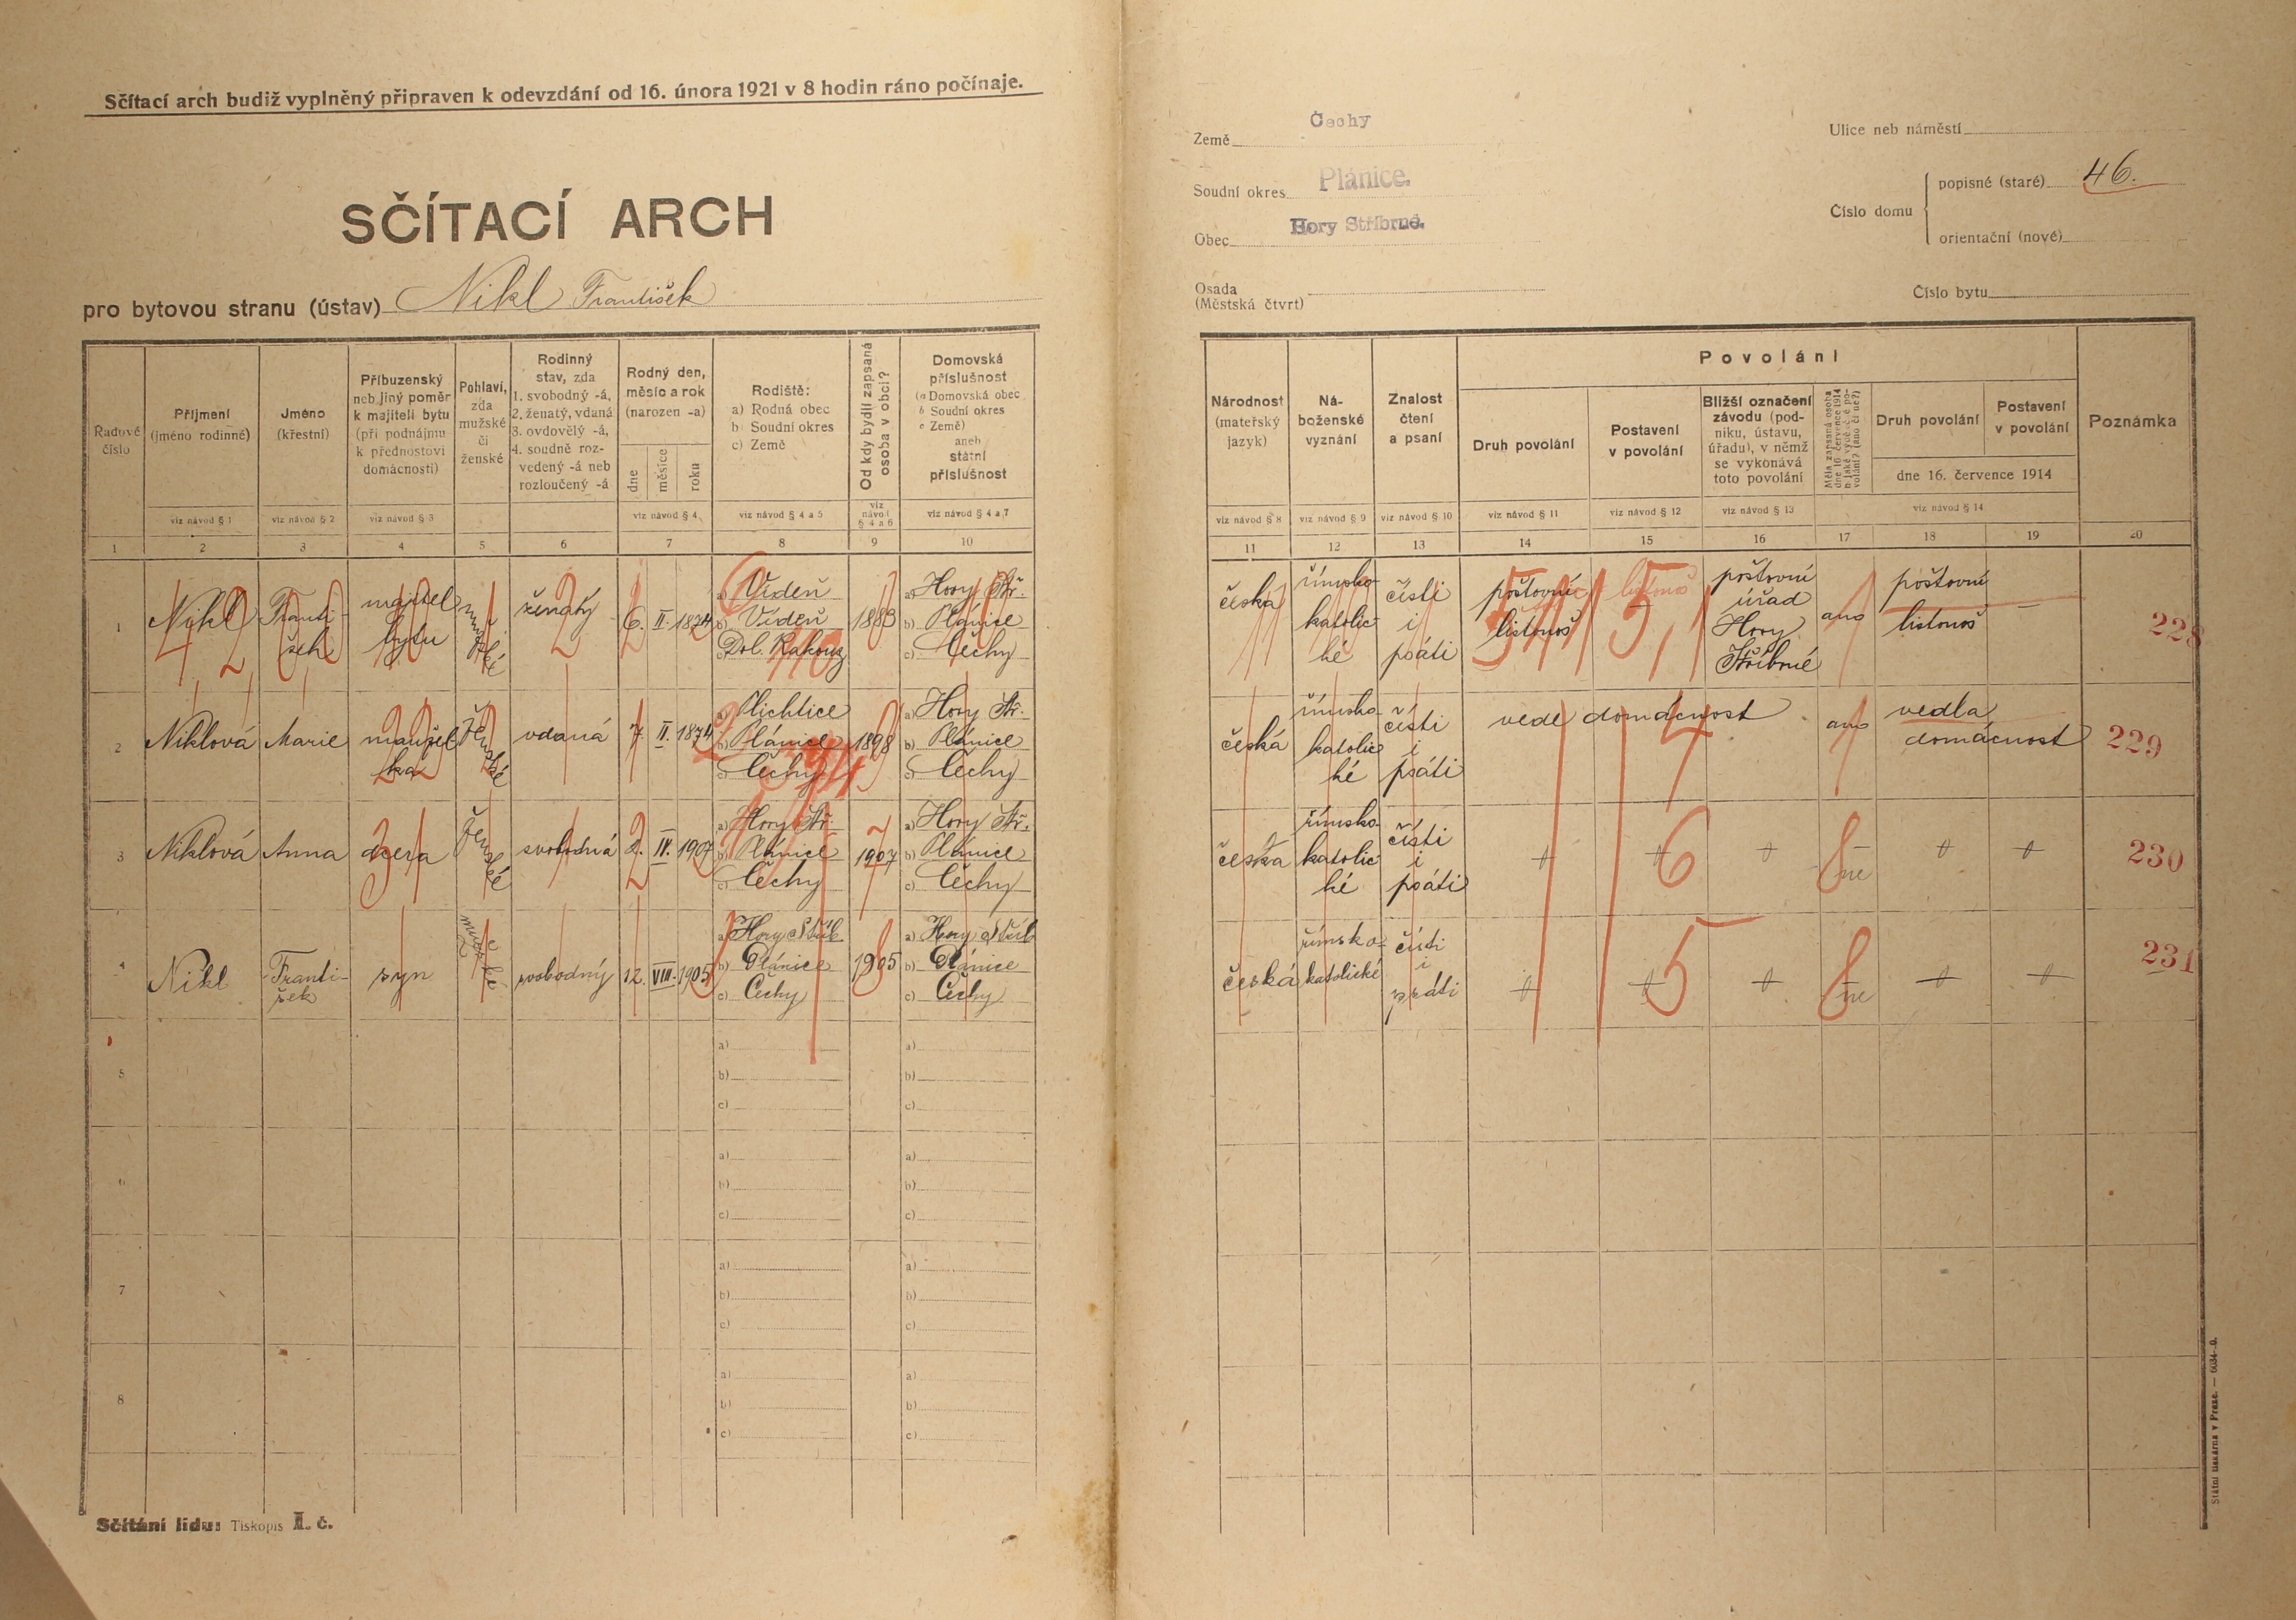 Sčítací arch budiž vyplněný připraven k odevzdání od 16. února 1921 v 8 hodin ráno počínaje.
SČÍTACÍ ARCH
pro bytovou stranu (ústav) Nikl František
Země Čechy
Soudní okres Plánice.
Obec Hory Stříbrné.
Osada
(Městská čtvrť)
Ulice neb náměstí
Číslo domu
popisné (staré) 46.
orientační (nové)
Číslo bytu
Řadové číslo
Příjmení (jméno rodinné)
Jméno (křestní)
Příbuzenský neb jiný poměr k majiteli bytu (při podnájmu k přednostovi domácnosti)
Pohlaví, zda mužské či ženské
Rodinný stav, zda 1. svobodný -á, 2. ženatý, vdaná 3. ovdovělý -á, 4. soudně rozvedený -á neb rozloučený -á
Rodný den, měsíc a rok (narozen -a)
dne měsíce roku
Rodiště: a) Rodná obec b) Soudní okres c) Země)
Od kdy bydlí zapsaná osoba v obci?
Domovská příslušnost (a Domovská obec b Soudní okres c Země) aneb státní příslušnost
viz návod § 1 viz návod § 2 viz návod § 3 viz návod § 4 viz návod § 4 a 5 viz návod § 4 a 6 viz návod § 4 a 7
1 2 3 4 5 6 7 8 9 10
Národnost (mateřský jazyk)
Náboženské vyznání
Znalost čtení a psaní
Povolání
Druh povolání
Postavení v povolání
Bližší označení závodu (podniku, ústavu, úřadu), v němž se vykonává toto povolání
Druh povolání
Postavení v povolání
dne 16. července 1914
Poznámka
viz návod § 8 viz návod § 9 viz návod § 10 viz návod § 11 viz návod § 12 viz návod § 13 viz návod § 14
11 12 13 14 15 16 17 18 19 20
1 Nikl Franti-
šek
majitel
bytu
mužské
ženatý
6. II. 1874
a) Vídeň
b) Vídeň
c) Dol. Rakousy
1883
a) Hory Stř.
b) Plánice
c) Čechy
česká
římsko-
katolic
ké
čísti
i
psáti
poštovní
listonoš
listonoš
poštovní
úřad
Hory
Stříbrné
ano
poštovní
listonoš
228
2 Niklová Marie
manžel
ka
ženské
vdaná
7. II. 1874
b) Plánice
c) Čechy
1898
a) Hory Stř.
b) Plánice
c) Čechy
česká
římsko-
katolic
ké
čísti
i
psáti
vede domácnost
ano
vedla
domácnost
229
3 Niklová Anna
dcera
ženské
svobodná
2. IV. 1907
a) Hory Stř.
b) Plánice
c) Čechy
1907
a) Hory Stř.
b) Plánice
c) Čechy
česká
římsko-
katolic
ké
čísti
i
psáti
ne
230
4 Nikl Franti-
šek
syn
mužské
svobodný
12. VIII. 1905
a) Hory Stříb
b) Plánice
c) Čechy
1905
a) Hory Stříb
b) Plánice
c) Čechy
česká
římsko-
katolické
čísti
i
psáti
ne
231
5
a)
b)
c)
a)
b)
c)
6
a)
b)
c)
a)
b)
c)
7
a)
b)
c)
a)
b)
c)
8
a)
b)
c)
a)
b)
c)
Sčítání lidu: Tiskopis I. č.
Státní tiskárna v Praze.